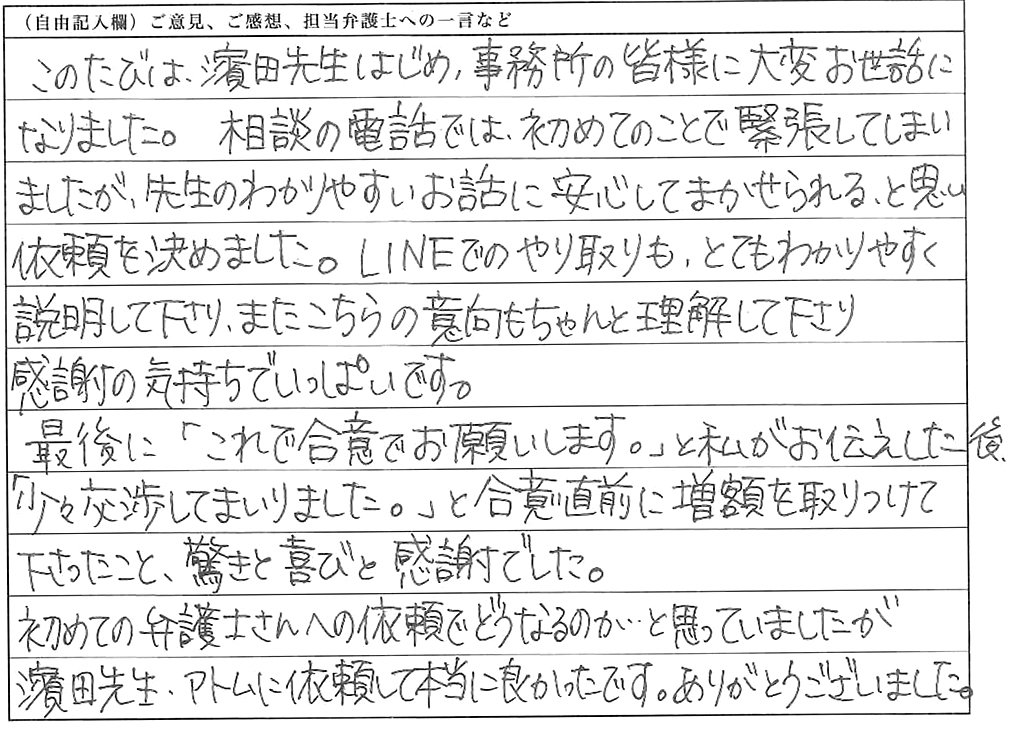 （自由記入欄）ご意見、ご感想、担当弁護士への一言など
このたびは、濱田先生はじめ、事務所の皆様に大変お世話に
なりました。 相談の電話では、初めてのことで緊張してしまい
ましたが、先生のわかりやすいお話に安心してまかせられる、と思い
依頼を決めました。LINEでのやり取りも、とてもわかりやすく
説明して下さり、またこちらの意向もちゃんと理解して下さり
感謝の気持ちでいっぱいです。
最後に「これで合意でお願いします。」と私がお伝えした後、
「少々交渉してまいりました。」と合意直前に増額を取りつけて
下さったこと、驚きと喜びと感謝でした。
初めての弁護士さんへの依頼でどうなるのか…と思っていましたが
濱田先生、アトムに依頼して本当に良かったです。ありがとうございました。